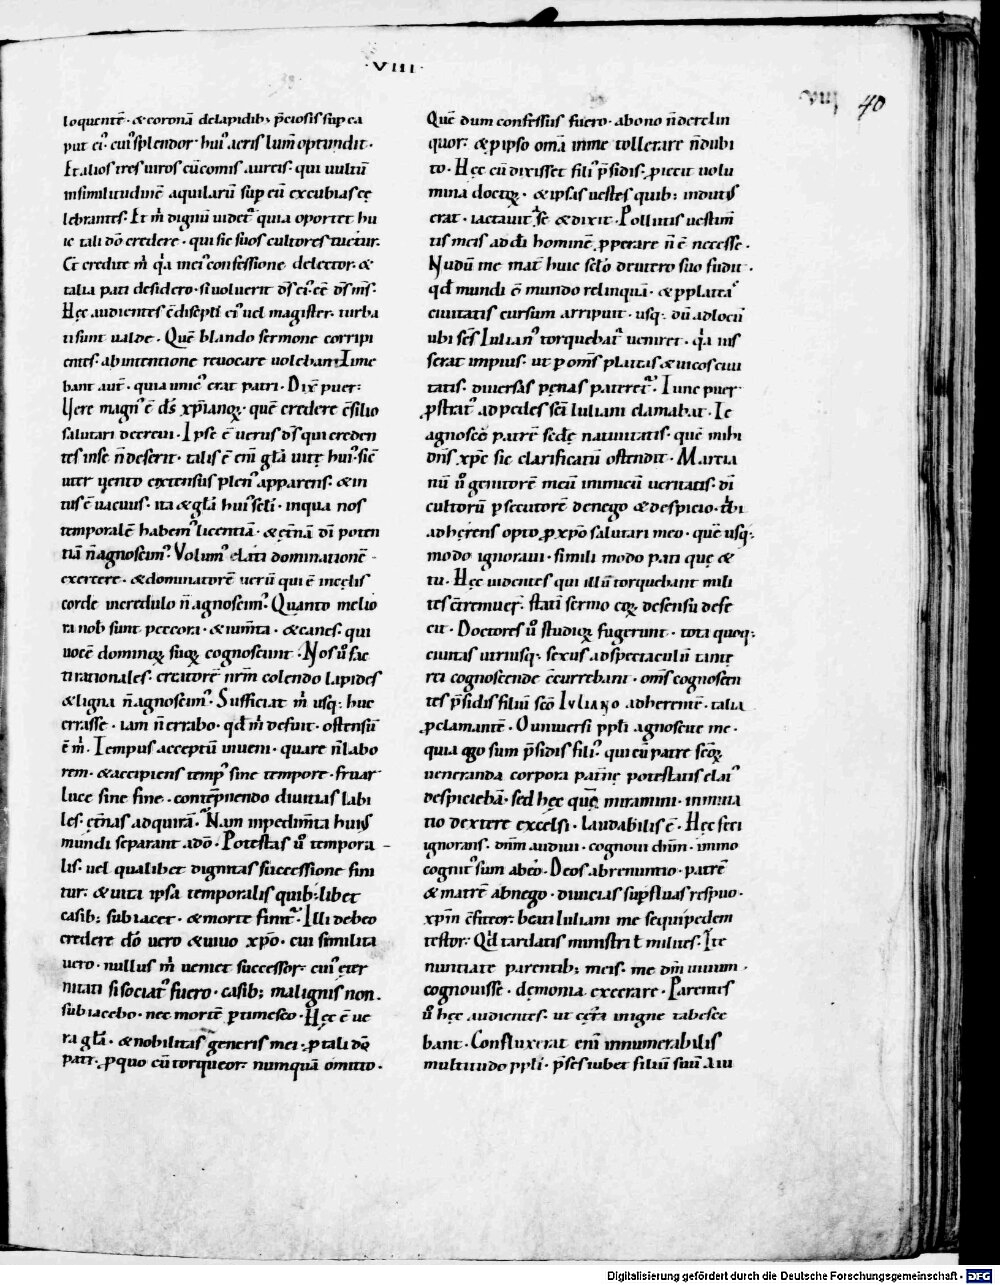 ·VIII·
VIII
40
loquentē · & coronā de lapidib; p̄ciosis sup ca
put ei᾽ · cui᾽ splendor hui᾽ aeris lum̄ optundit ·
Et alios tres uiros cū comis aureis · qui uultū
in similitudinē aquilarū sup eū excubias ce
lebrantes · Et m̄ dignū uidet᾽ quia oportet hu
ic tali dō credere · qui sic suos cultores tuetur ·
Et credite m̄ q̇a mei᾽ confessione delector · &
talia pati desidero · si uoluerit ds̄ ei᾽ ēē ds̄ ms̄ ·
Hęc audientes c̄discipl̄i ei᾽ uel magister turba
ti sunt ualde · Quē blando sermone corripi
entes · ab intentione reuocare uolebant · Time
bant aut̄ · quia unic᾽ erat patri · Dix̄ puer :
Vere magn᾽ ē ds̄ xp̄ianoꝝ · quē credere c̄silio
salutari decreui · Ipse ē uerus ds̄ qui creden
tes in se n̄ deserit · talis ē eni᾽ gl̄a uitę hui᾽ · sic̄
uter uento extensus plen᾽ apparens · & in
tus ē uacuus · ita & gl̄a hui᾽ sc̄li · in qua nos
temporalē habem᾽ licentiā · & ęt̄nā dī poten
tiā n̄ agnoscim᾽ · Volum᾽ elati dominationē
exercere · & dominatorē uerū qui ē in cęlis
corde incredulo n̄ agnoscim᾽ · Quanto melio
ra nob̄ sunt peccora · & ium̄ta · & canes · qui
uocē dominoꝝ suoꝝ cognoscunt · Nos u᾽ fac
ti rationales · creatorē nr̄m colendo lapides
& ligna n̄ agnoscim᾽ · Sufficiat m̄ usq; huc
errasse · iam n̄ errabo · qđ m̄ defuit · ostensū
ē m̄ · Tempus acceptū inueni · quare n̄ labo
rem · & accipiens temp᾽ sine tempore · fruar
luce sine fine · contēpnendo diuitias labi
les · ęt̄nas adquirā · Nam inpedim̄ta huius
mundi separant a dō · Potestas u᾽ tempora
lis · uel qualibet dignitas successione fini
tur · & uita ipsa temporalis quib; libet
casib; subiacet · & morte finit᾽ · Illi debeo
credere dō uero & uiuo xp̄o · cui similita
uero · nullus m̄ ueniet successor · cui᾽ ęter
nitati si sociat᾽ fuero · casib; malignis non
subiacebo · nec mortē ꝑtimesco · Hęc ē ue
ra gl̄a · & nobilitas generis mei · ꝓ tali dō
patr᾽ · ꝓ quo cū torqueor · numquā omitto ·
Quē dum confessus fuero · ab ono n̄ derelin
quor · & ꝓ ipso om̄a in me tollerare n̄ dubi
to · Hęc cū dixisset fili᾽ p̄sidis · ꝓiecit uolu
mina doctoꝝ · & ipsas uestes quib; indutus
erat · iactauit a se & dixit · Pollutis uestim̄
tis meis ad dī hominē ꝓperare n̄ ē necesse ·
Nudū me mat᾽ huic sc̄lo de utero suo fudit ·
qđ mundi ē mundo relinquā · & ꝓ plateā᾽
ciuitatis cursum arripuit · usq; dū ad locū
ubi sc̄s Iulian᾽ torquebat᾽ ueniret · q̇a ius
serat impius · ut ꝑ om̄s plateas & uicos ciui
tatis · diuersas pęnas pateret᾽ · Tunc puer
ꝓstrat᾽ ad pedes sc̄i Iuliani clamabat · Te
agnosco patrē sc̄dę natiuitatis · quē mihi
dn̄s xp̄c sic clarificatū ostendit · Marcia
nū u᾽ genitorē meū inimicū ueritatis · dī
cultorū ꝑsecutorē denego & despicio · tibi
adherens opto ꝓ xp̄o salutari meo · quē usq;
modo ignoraui · simili modo pati que &
tu · Hęc uidentes qui illū torquebant mili
tes c̄tremuer̄ · statī sermo eoꝝ de sensu defe
cit · Doctores u᾽ studioꝝ fugerunt · tota quoq;
ciuitas utriusq; sexus ad spectaculū tantę
rei cognoscendę c̄currebant · om̄s cognoscen
tes p̄sidis filiū sc̄o IVLIANO adherentē · talia
ꝓclamantē · O uniuersi ppl̄i agnoscite me ·
quia ego sum p̄sidis fili᾽ · qui cū patre sc̄oꝝ
ueneranda corpora pat̄nę potestatis elat᾽
despiciebā · sed hęc quę miramini · inmuta
tio dexterę excelsi · laudabilis ē · Hęc feci
ignorans · dn̄m audiui · cognoui chm̄ · immo
cognit᾽ sum ab eo · Deos abrenuntio · patrē
& matrē abnego · diuicias sup̄fluas respuo ·
xp̄m c̄fiteor · beati Iuliani me sequipedem
testor · Qđ tardatis ministri ł milites · Ite
nuntiate parentib; meis · me dm̄ uiuum
cognouisse · demonia execrare · Parentes
u᾽ hęc audientes · ut cęra in igne tabesce
bant · Confluxerat eni᾽ innumerabilis
multitudo ppl̄i · p̄ses iubet filiū suū a iu
Digitalisierung gefördert durch die Deutsche Forschungsgemeinschaft - DFG